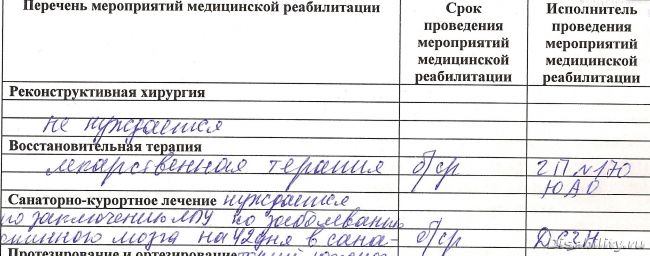 Перечень мероприятий медицинской реабилитации
Срок проведения мероприятий медицинской реабилитации
Исполнитель проведения мероприятий медицинской реабилитации
Реконструктивная хирургия
не нуждается
Восстановительная терапия
лекарственная терапия б/ср ГП №170
ЮАО
Санаторно-курортное лечение нуждается
по заключению ЛПУ по заболеванию
спинного мозга на 42 дня в сана- б/ср ДСЗН
Протезирование и ортезирование
Disability.ru